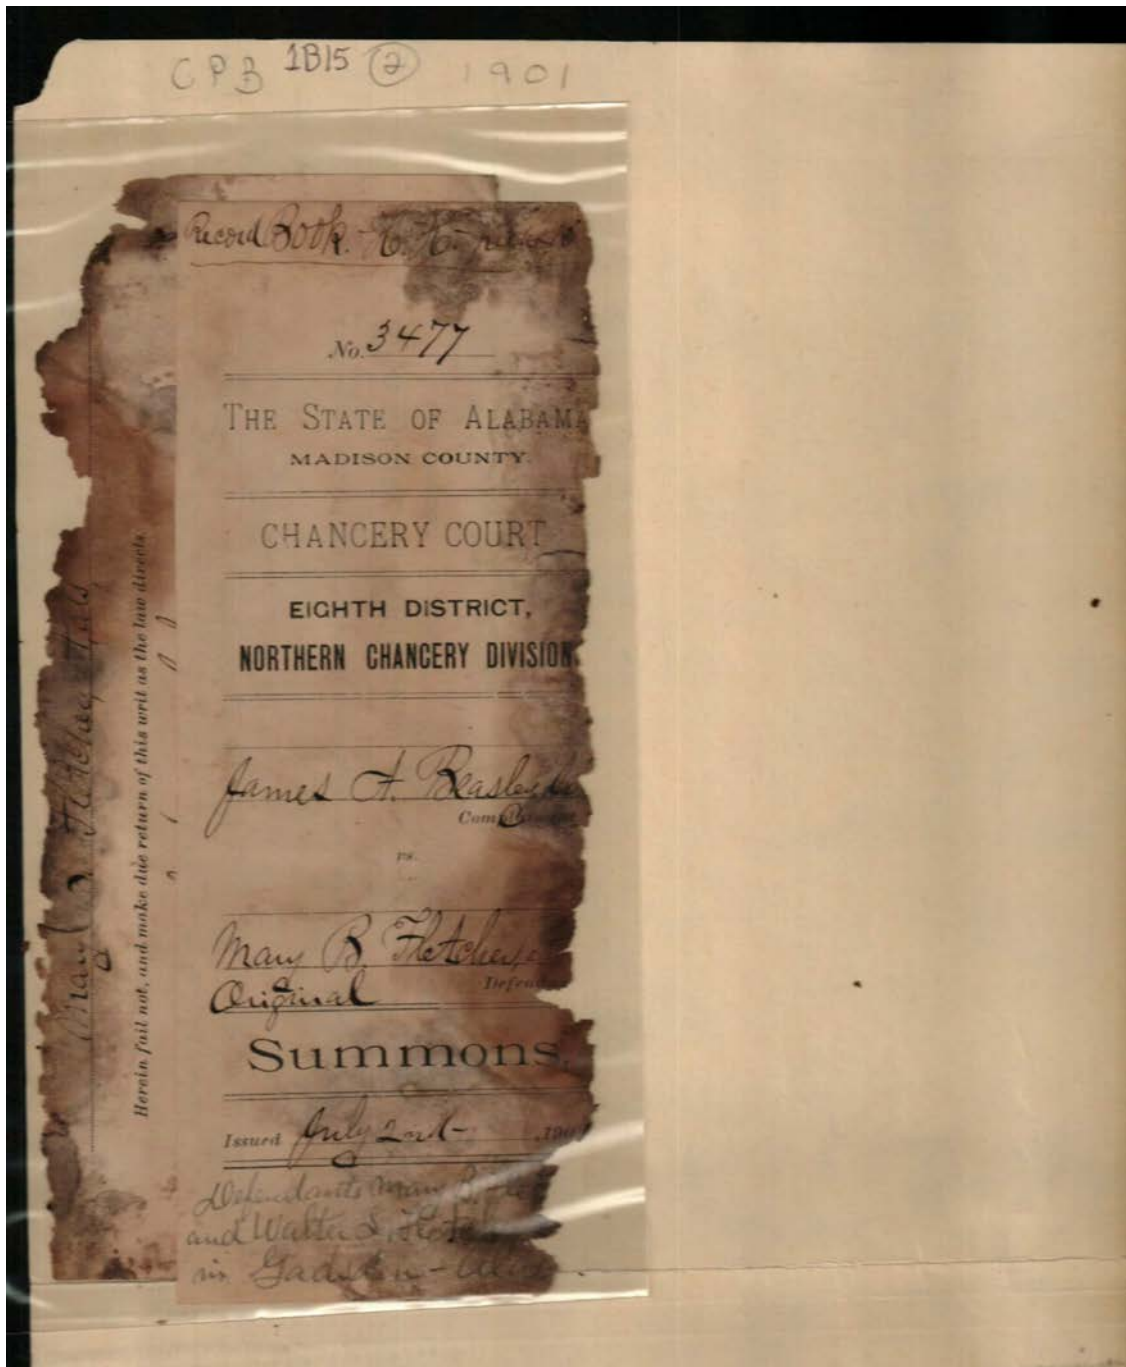 CPB 1B15 2 1901
Record Book.
No. 3477
THE STATE OF ALABAMA
MADISON COUNTY.
CHANCERY COURT
EIGHTH DISTRICT,
NORTHERN CHANCERY DIVISION.
James A. Beasley
Com
vs.
Mary B. Fletcher,
Defen
Original
Summons,
Issued July 2nd 190
Defendants Mary B.
and Walter
in Gadsden -
Herein fail not, and make due return of this writ as the law directs.
Mary B Fletcher